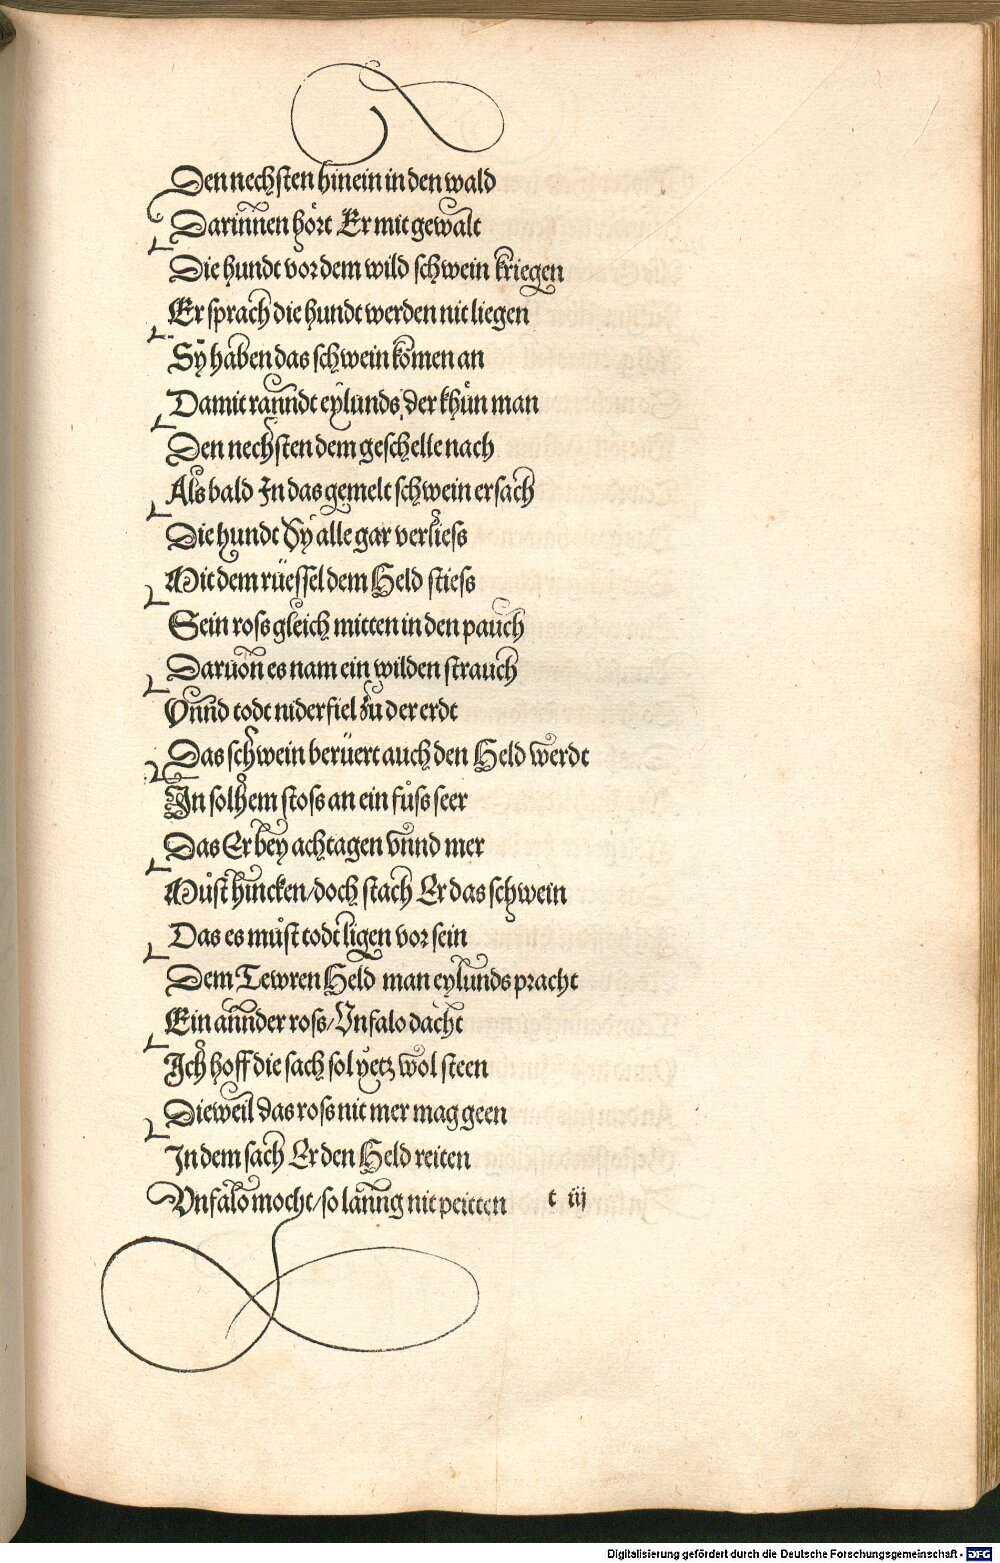 Den nechsten hinein in den wald
Darinnen hört Er mit gewalt
Die hundt vor dem wild schwein kriegen
Er sprach die hundt werden nit liegen
Sÿ haben das schwein komen an
Damit ranndt eylunds der khün man
Den nechsten dem geschelle nach
Als bald In das gemelt schwein ersach
Die hundt Sÿ alle gar verließ
Mit dem rüessel dem Held stieß
Sein roß gleich mitten in den pauch
Daruon es nam ein wilden strauch
Vnnd todt niderfiel zu der erdt
Das schwein berüert auch den Held werdt
In solhem stoß an ein fůß seer
Das Er bey achtagen vnnd mer
Můst hincken/doch stach Er das schwein
Das es můst todt ligen vor sein
Dem Tewren Held man eylunds pracht
Ein annder roß/Vnfalo dacht
Ich hoff die sach sol yetz wol steen
Dieweil das roß nit mer mag geen
In dem sach Er den Held reiten
Vnfalo mocht/so lanng nit peitten t iij
Digitalisierung gefördert durch die Deutsche Forschungsgemeinschaft - DFG